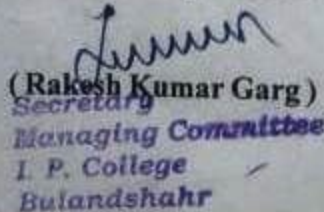 ( Rakesh Kumar Garg )
Secretary
Managing Committee
I. P. College
Bulandshahr